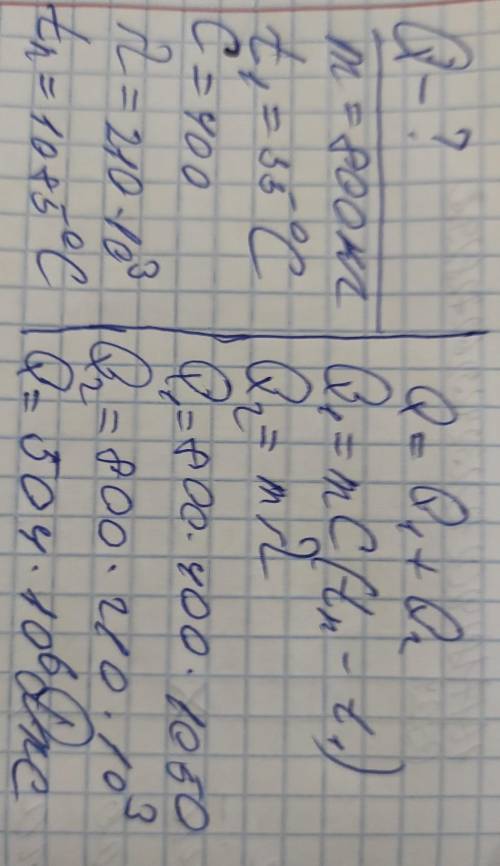 Q - ?
m = 800 кг
t₁ = 35 °C
C = 400
λ = 210·10³
tп = 1085 °C
Q = Q₁ + Q₂
Q₁ = mC(tп - t₁)
Q₂ = mλ
Q₁ = 800·400·1050
Q₂ = 800·210·10³
Q = 504·10⁶ Дж